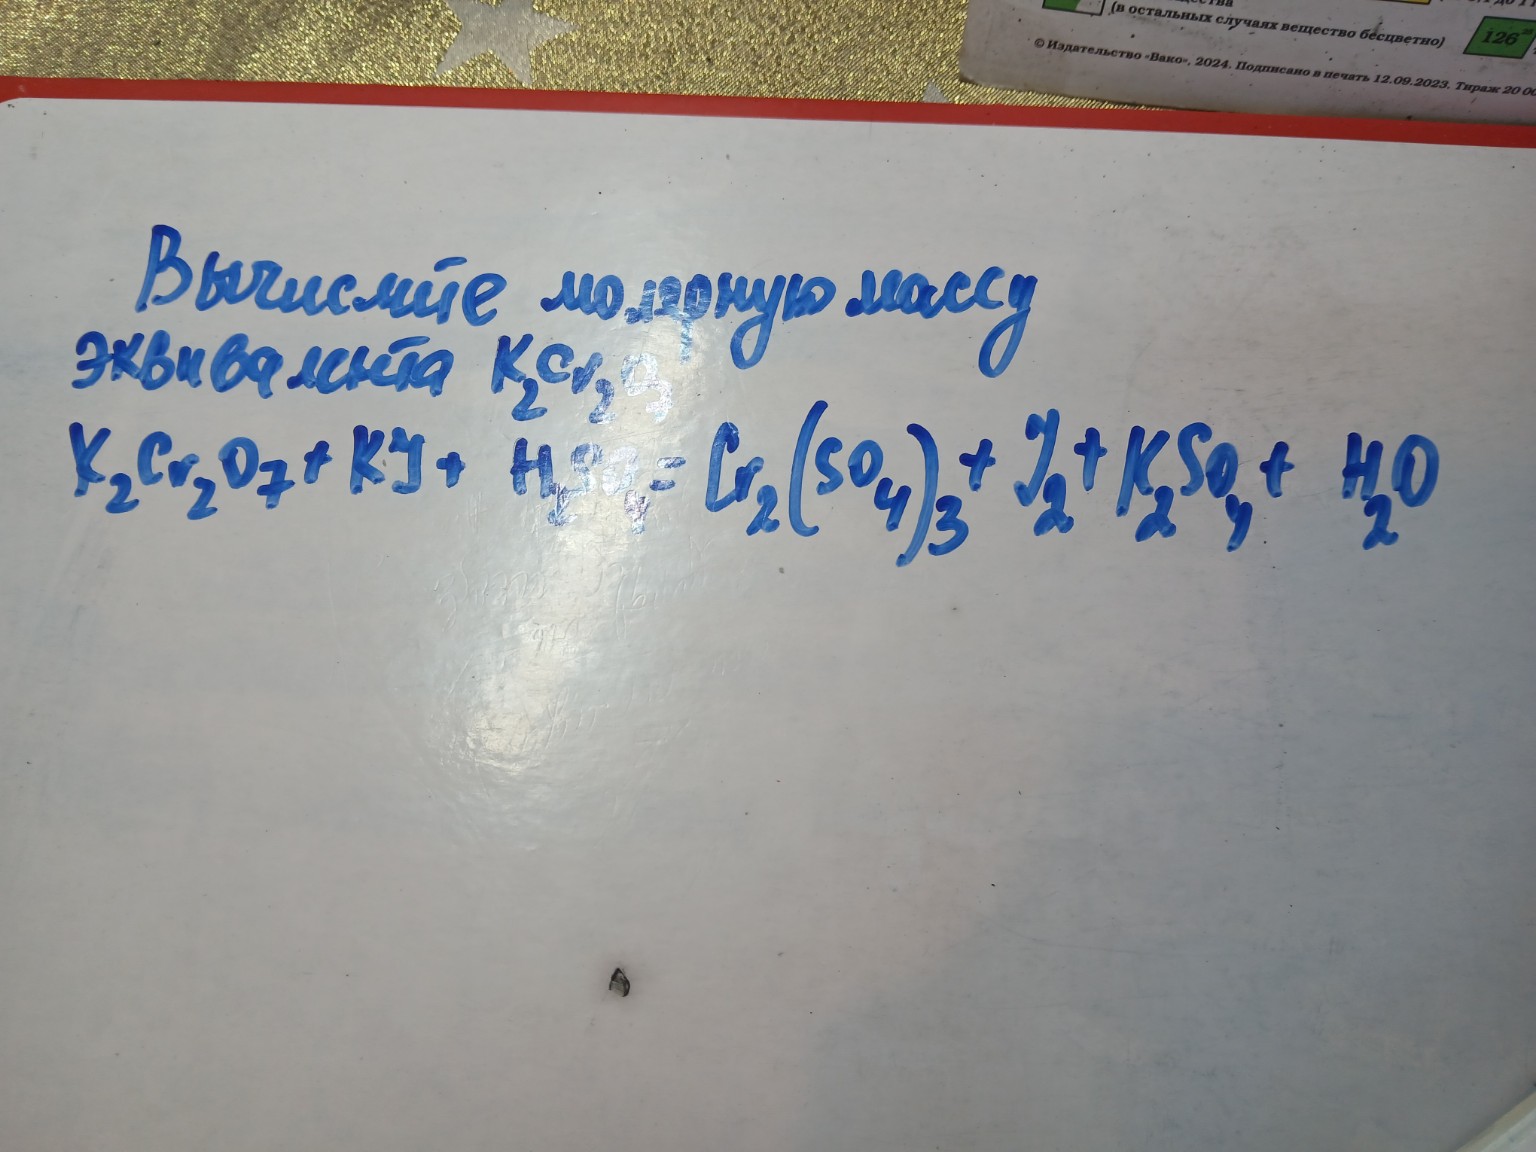 (в остальных случаях вещество бесцветно)
126
© Издательство «Вако», 2024. Подписано в печать 12.09.2023. Тираж 20 00
Вычислите молярную массу
эквивалента K₂Cr₂O₇
K₂Cr₂O₇ + KJ + H₂SO₄ = Cr₂(SO₄)₃ + J₂ + K₂SO₄ + H₂O